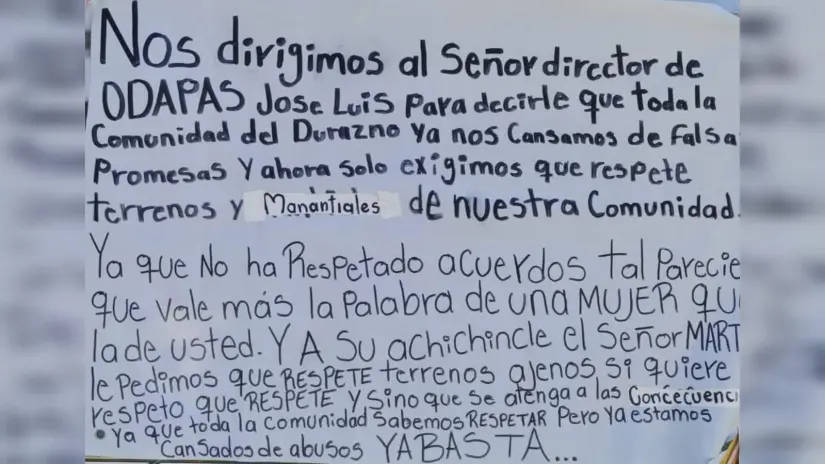 Nos dirigimos al Señor director de
ODAPAS Jose Luis Para decirle que toda la
Comunidad del Durazno Ya nos Cansamos de Falsa
Promesas Y ahora solo exigimos que respete
terrenos y Manantiales de nuestra Comunidad.
Ya que No ha Respetado acuerdos tal Parecie
que vale más la Palabra de una MUJER QU
la de usted. Y A Su achichincle el Señor MART
le Pedimos que RESPETE terrenos ajenos si quiere
respeto que RESPETE Y Sino que se atenga a las Concecuenci
• Ya que toda la Comunidad Sabemos RESPETAR Pero Ya estamos
Cansados de abusos YA BASTA...